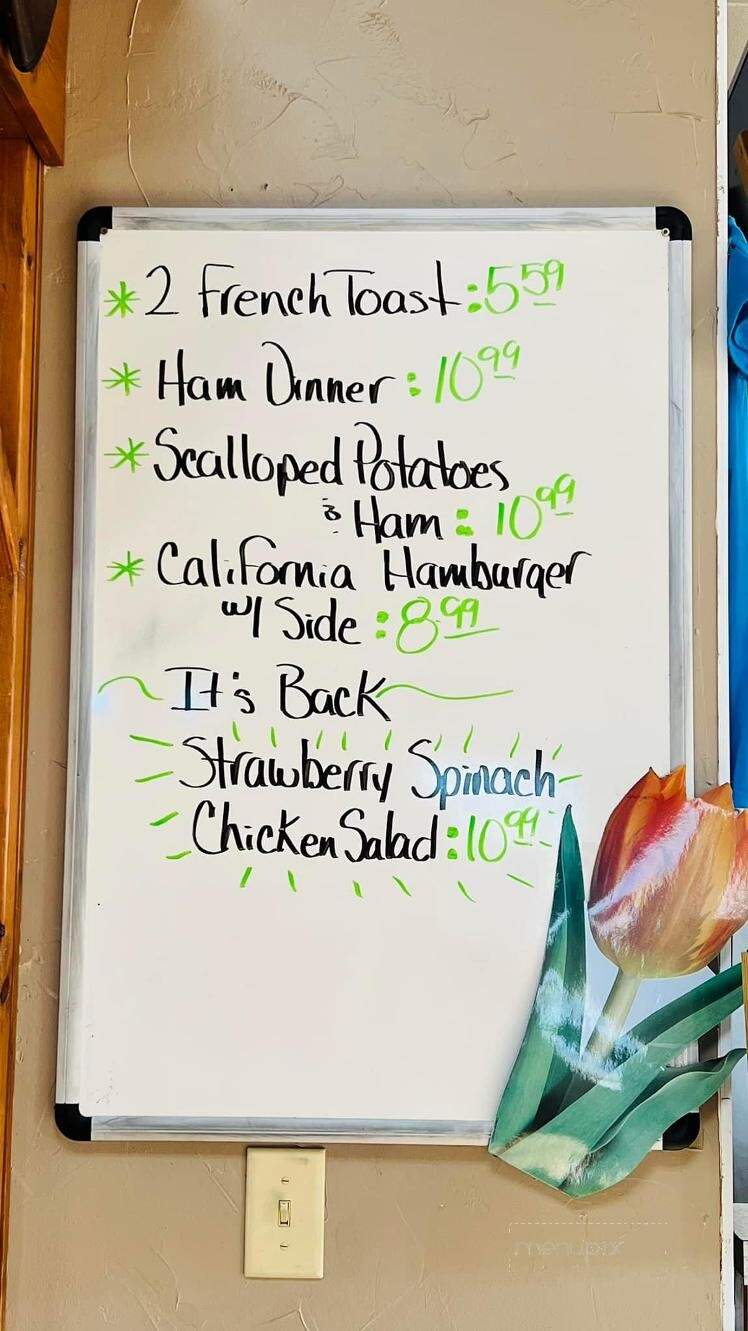 * 2 French Toast : 5 59
* Ham Dinner : 10 99
* Scalloped Potatoes
& Ham : 10 99
* California Hamburger
w/ Side : 8 99
It's Back
Strawberry Spinach
Chicken Salad : 10 99
menupix